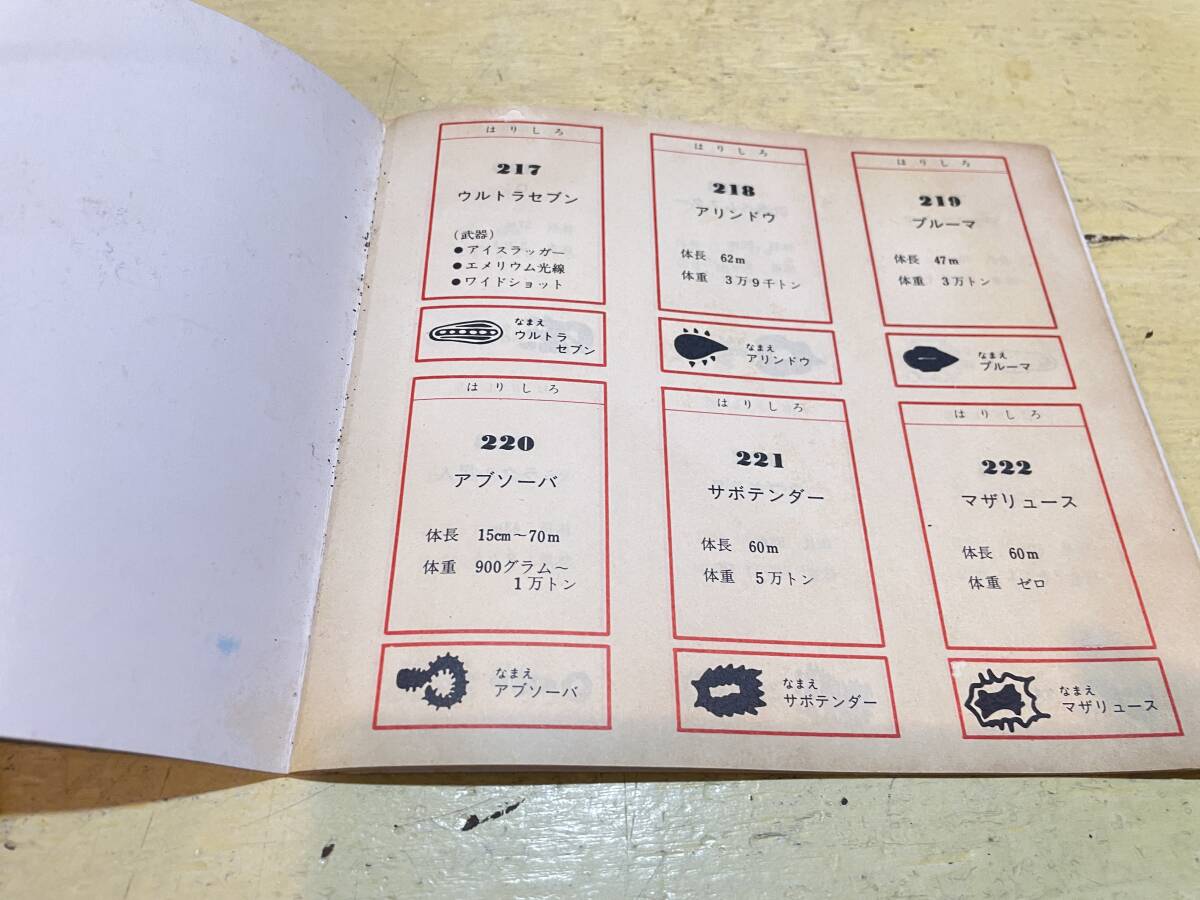 はりしろ
217
ウルトラセブン
(武器)
●アイスラッガー
●エメリウム光線
●ワイドショット
なまえ
ウルトラ
セブン
はりしろ
218
アリンドウ
体長 62m
体重 3万9千トン
なまえ
アリンドウ
はりしろ
219
ブルーマ
体長 47m
体重 3万トン
なまえ
ブルーマ
はりしろ
220
アブソーバ
体長 15cm〜70m
体重 900グラム〜
1万トン
なまえ
アブソーバ
はりしろ
221
サボテンダー
体長 60m
体重 5万トン
なまえ
サボテンダー
はりしろ
222
マザリュース
体長 60m
体重 ゼロ
なまえ
マザリュース